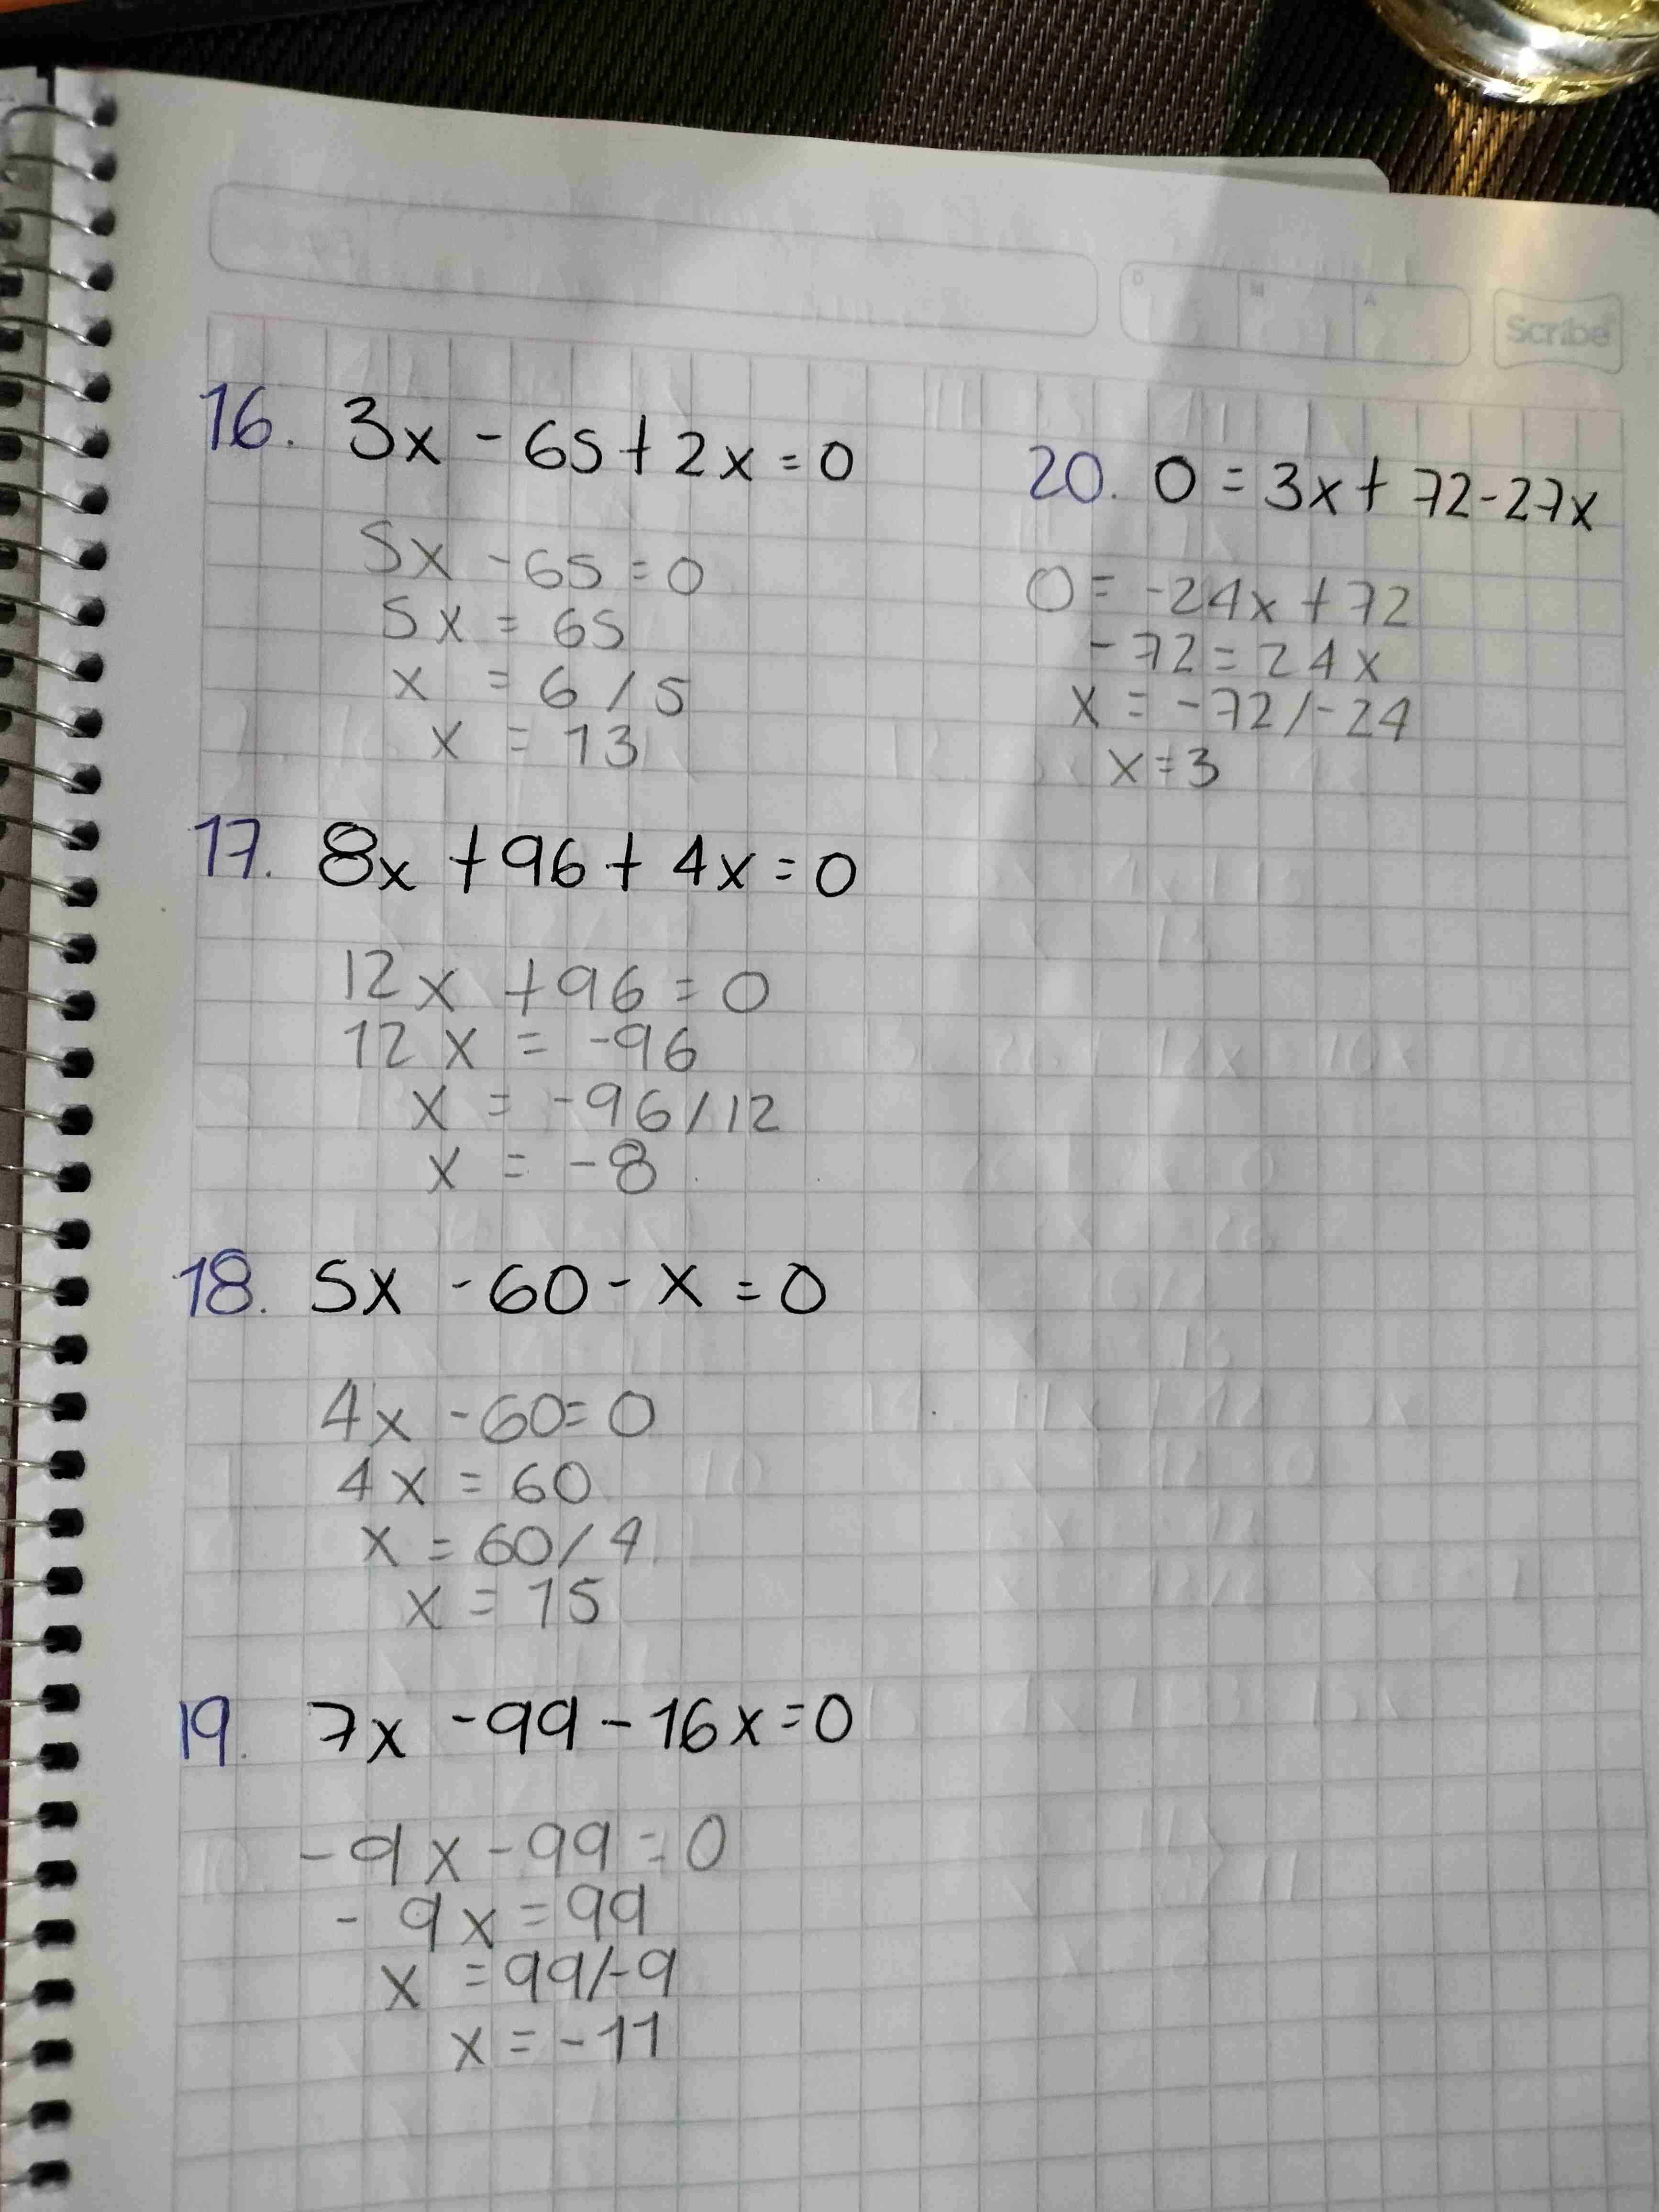 Scribe
D M A
16. 3x - 65 + 2x = 0
5x - 65 = 0
5x = 65
x = 6 / 5
x = 13
17. 8x + 96 + 4x = 0
12x + 96 = 0
12x = -96
x = -96/12
x = -8
18. 5x - 60 - x = 0
4x - 60 = 0
4x = 60
x = 60/4
x = 15
19. 7x - 99 - 16x = 0
-9x - 99 = 0
-9x = 99
x = 99/-9
x = -11
20. 0 = 3x + 72 - 27x
0 = -24x + 72
-72 = 24x
x = -72/-24
x = 3